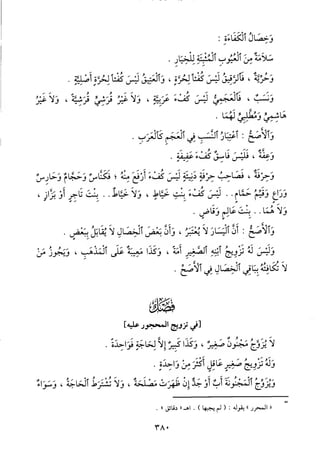 وَخِصَالُ الْكَفَاءَةِ :
سَلَامَةٌ مِنَ الْعُيُوبِ الْمُثْبِتَةِ لِلْخِيَارِ .
وَحُرِّيَّةٌ ، فَالرَّقِيقُ لَيْسَ كُفْئاً لِحُرَّةٍ ، وَالْعَتِيقُ لَيْسَ كُفْئاً لِحُرَّةٍ أَصْلِيَّةٍ .
وَنَسَبٌ ، فَالْعَجَمِيُّ لَيْسَ كُفْءَ عَرَبِيَّةٍ ، وَلَا غَيْرُ قُرَشِيٍّ قُرَشِيَّةً ، وَلَا غَيْرُ
هَاشِمِيٍّ وَمُطَّلِبِيٍّ لَهُمَا .
وَالْأَصَحُّ : اعْتِبَارُ النَّسَبِ فِي الْعَجَمِ كَالْعَرَبِ .
وَعِفَّةٌ ، فَلَيْسَ فَاسِقٌ كُفْءَ عَفِيفَةٍ .
وَحِرْفَةٌ ، فَصَاحِبُ حِرْفَةٍ دَنِيئَةٍ لَيْسَ كُفْءَ أَرْفَعَ مِنْهُ ؛ فَكَنَّاسٌ وَحَجَّامٌ وَحَارِسٌ
وَرَاعٍ وَقَيِّمُ حَمَّامٍ .. لَيْسَ كُفْءَ بِنْتِ خَيَّاطٍ ، وَلَا خَيَّاطٌ .. بِنْتَ تَاجِرٍ أَوْ بَزَّازٍ ،
وَلَا هُمَا .. بِنْتَ عَالِمٍ وَقَاضٍ .
وَالْأَصَحُّ : أَنَّ الْيَسَارَ لَا يُعْتَبَرُ ، وَأَنَّ بَعْضَ الْخِصَالِ لَا يُقَابَلُ بِبَعْضٍ .
وَلَيْسَ لَهُ تَزْوِيجُ ابْنِهِ الصَّغِيرِ أَمَةً ، وَكَذَا مَعِيبَةٌ عَلَى الْمَذْهَبِ ، وَيَجُوزُ مَنْ
لَا تُكَافِئُهُ بِبَاقِي الْخِصَالِ فِي الْأَصَحِّ .
فَصْلٌ
[في تزويج المحجور عليه]
لَا يُزَوَّجُ مَجْنُونٌ صَغِيرٌ ، وَكَذَا كَبِيرٌ إِلَّا لِحَاجَةٍ فَوَاحِدَةً .
وَلَهُ تَزْوِيجُ صَغِيرٍ عَاقِلٍ أَكْثَرَ مِنْ وَاحِدَةٍ .
وَيُزَوِّجُ الْمَجْنُونَةَ أَبٌ أَوْ جَدٌّ إِنْ ظَهَرَتْ مَصْلَحَةٌ ، وَلَا تُشْتَرَطُ الْحَاجَةُ ، وَسَوَاءٌ
« المحرر » بقوله : ( لم يجبها ) . اهـ « دقائق » .
٣٨٠